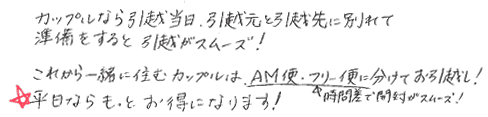 カップルなら引越当日、引越元と引越先に別れて
準備をすると引越がスムーズ!
これから一緒に住むカップルは、AM便・フリー便に分けてお引越し!
↑時間差で開封がスムーズ!
☆平日ならもっとお得になります!